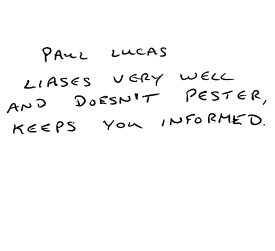 PAUL LUCAS
LIASES VERY WELL
AND DOESN'T PESTER,
KEEPS YOU INFORMED.